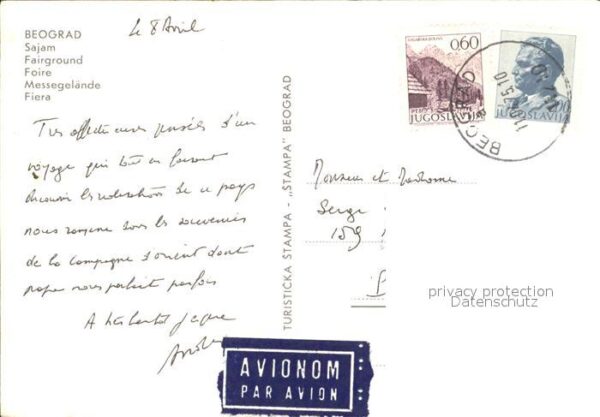 BEOGRAD
Sajam
Fairground
Foire
Messegelände
Fiera
Le 8 Avril
Très affectueuses pensées d'un
voyage qui tout en faisant
découvrir les réalisations de ce pays
nous ramène tous les souvenirs
de la campagne d'orient dont
papa nous parlait parfois
A très bientôt
TURISTICKA STAMPA - „STAMPA" BEOGRAD
0.60
JUGOSLAVIJA
JUGOSLAVIJA
BEOGRAD
Monsieur et Madame
Serge
159
privacy protection
Datenschutz
AVIONOM
PAR AVION